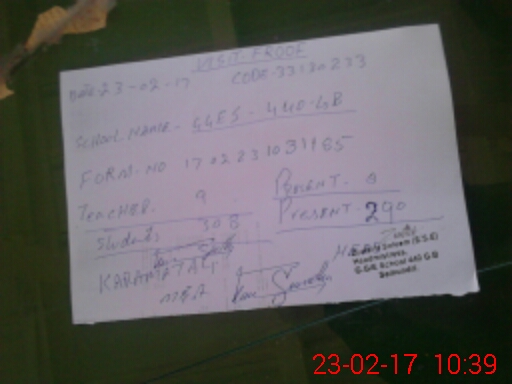 VISIT. PROOF
Date-23-02-17 CODE-33130233
SCHOOL NAME- GGES - 440-GB
FORM-NO 1702231031185
Teacher. 9 0
Students 308 PRESENT-290
KARAMAT ALI
MEA
(S.S.E)
Headmistress,
G.G.E. School 440 G.B
23-02-17 10:39